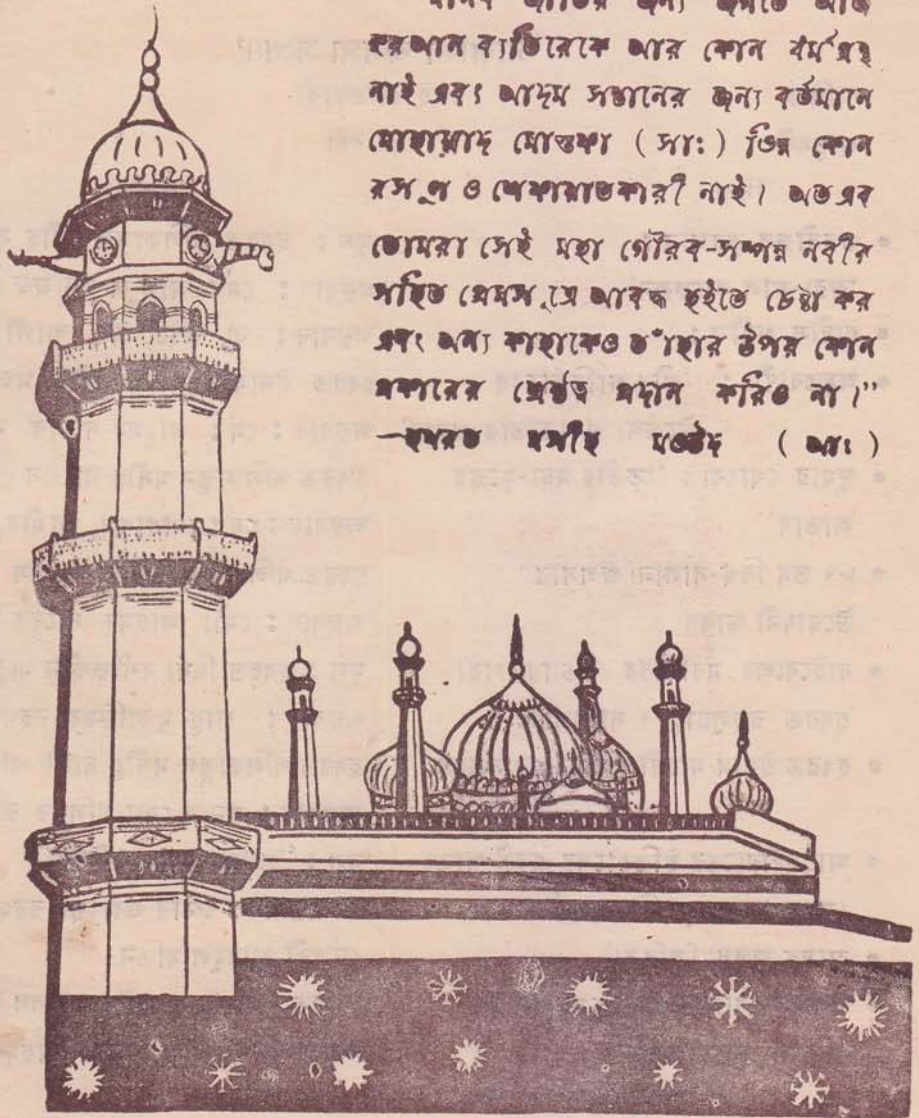 মানব জাতির জন্য জগতে আজ
করআন ব্যতিরেকে আর কোন ধর্ম গ্রন্থ
নাই এবং আদম সন্তানের জন্য বর্তমানে
মোহাম্মাদ মোস্তফা ( সাঃ ) ভিন্ন কোন
রসূল ও শেফায়াতকারী নাই। অতএব
তোমরা সেই মহা গৌরব-সম্পন্ন নবীর
সহিত প্রেমসূত্রে আবদ্ধ হইতে চেষ্টা কর
এবং অন্য কাহাকেও তাঁহার উপর কোন
প্রকারের শ্রেষ্ঠত্ব প্রদান করিও না।”
—হযরত মসীহ মওউদ ( আঃ )